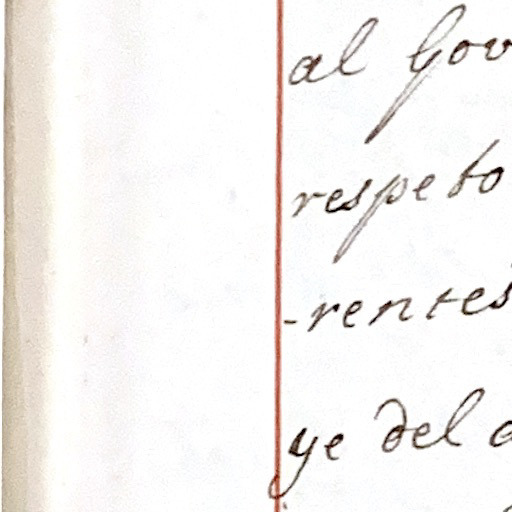 al Gov
respeto
-rentes
ye del